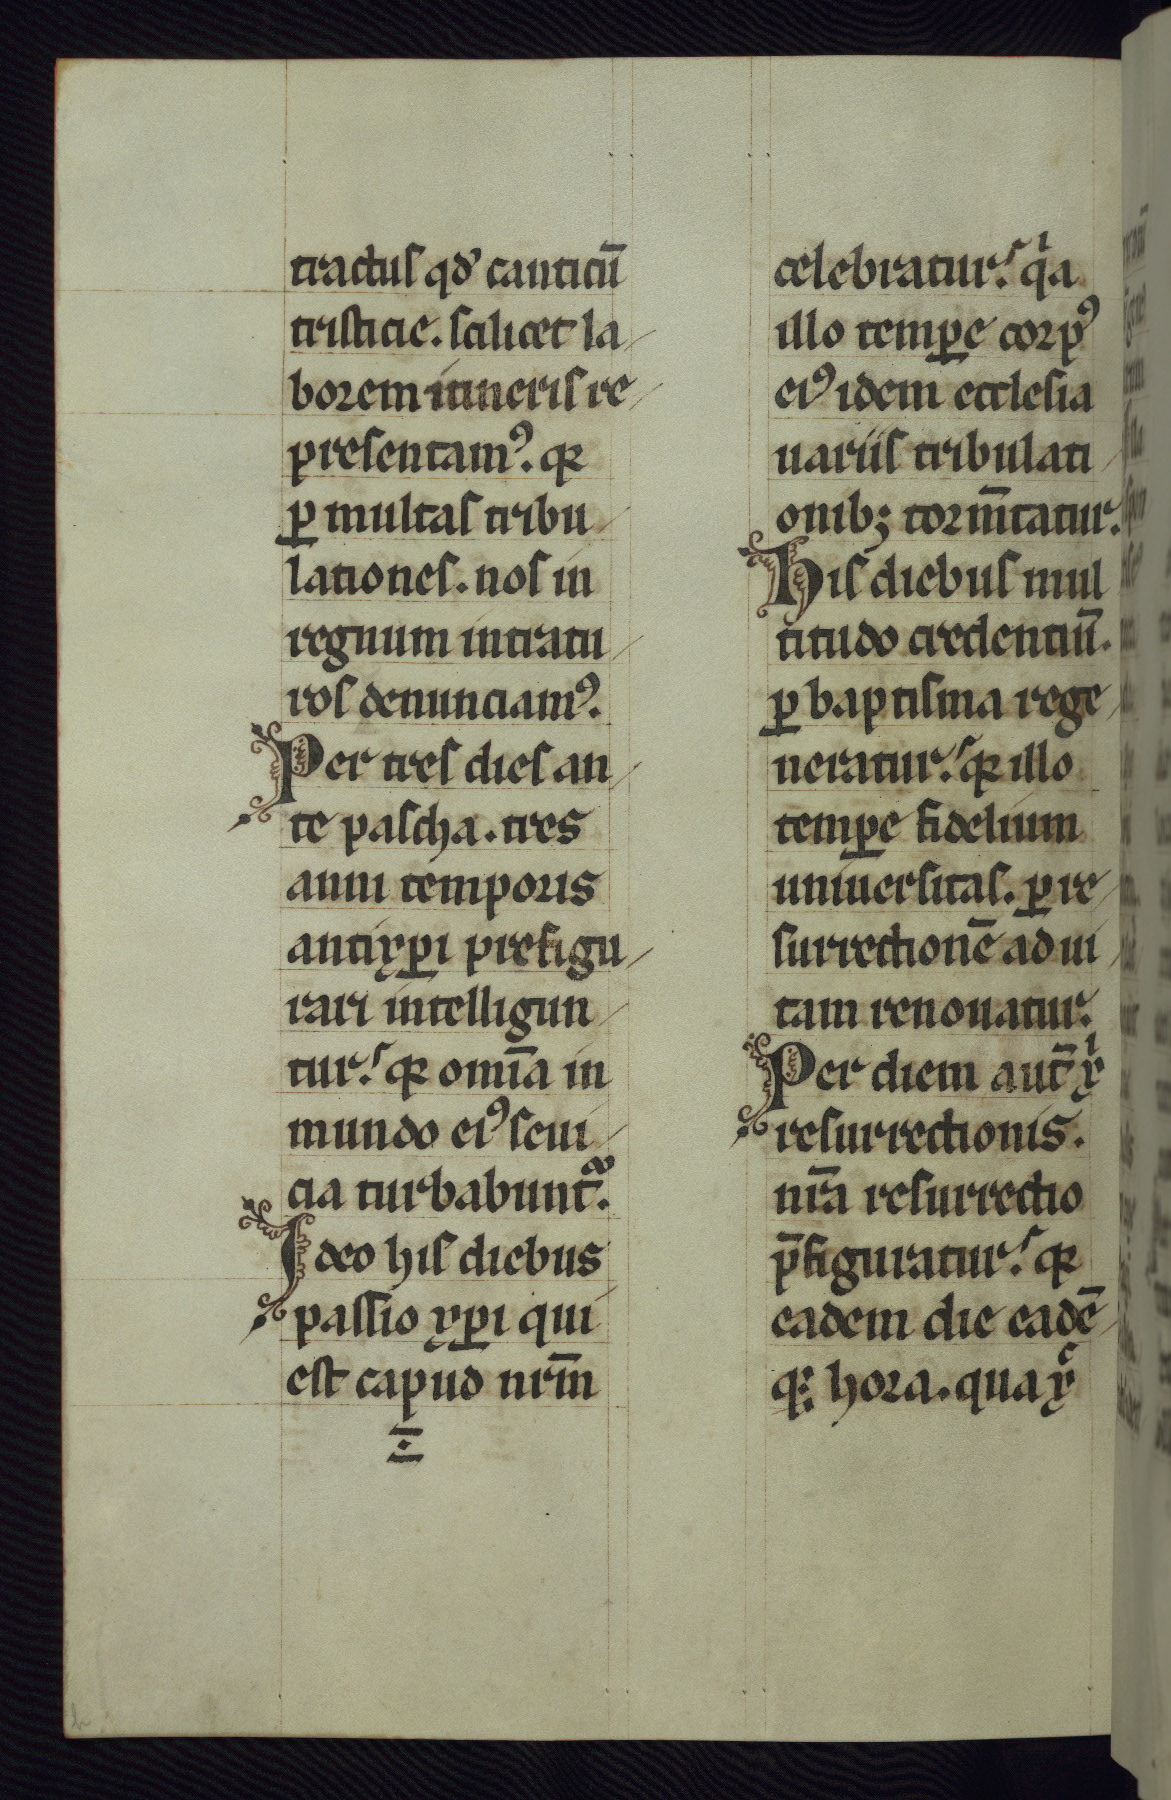 tractus qd̕ canticū
tristicie. scilicet la
borem itineris re
presentamꝰ. qꝛ
ꝑ multas tribu
lationes. nos in
regnum intratu
ros denunciamꝰ.
Per tres dies an
te pascha. tres
anni temporis
antixp̅i prefigu
rari intelligun
tur. qꝛ omīa in
mundo eiꝰ seui
cia turbabunt᷑.
Ideo his diebus
passio xp̅i qui
est capud nr̄m
celebratur. qͥa
illo tempꝑe corpꝰ
eiꝰ idem ecclesia
uariis tribulati
onibꝫ torm̄tatur.
His diebus mul
titudo credentiū.
ꝑ baptisma rege
neratur. qꝛ illo
temꝑe fidelium
uniuersitas. ꝑ re
surrectionē ad ui
tam renouatur.
Per diem aut̄ xͥ
resurrectionis.
nr̄a resurrectio
p̄figuratur. qꝛ
eadem die eadē
qꝫ hora. qua xͨ